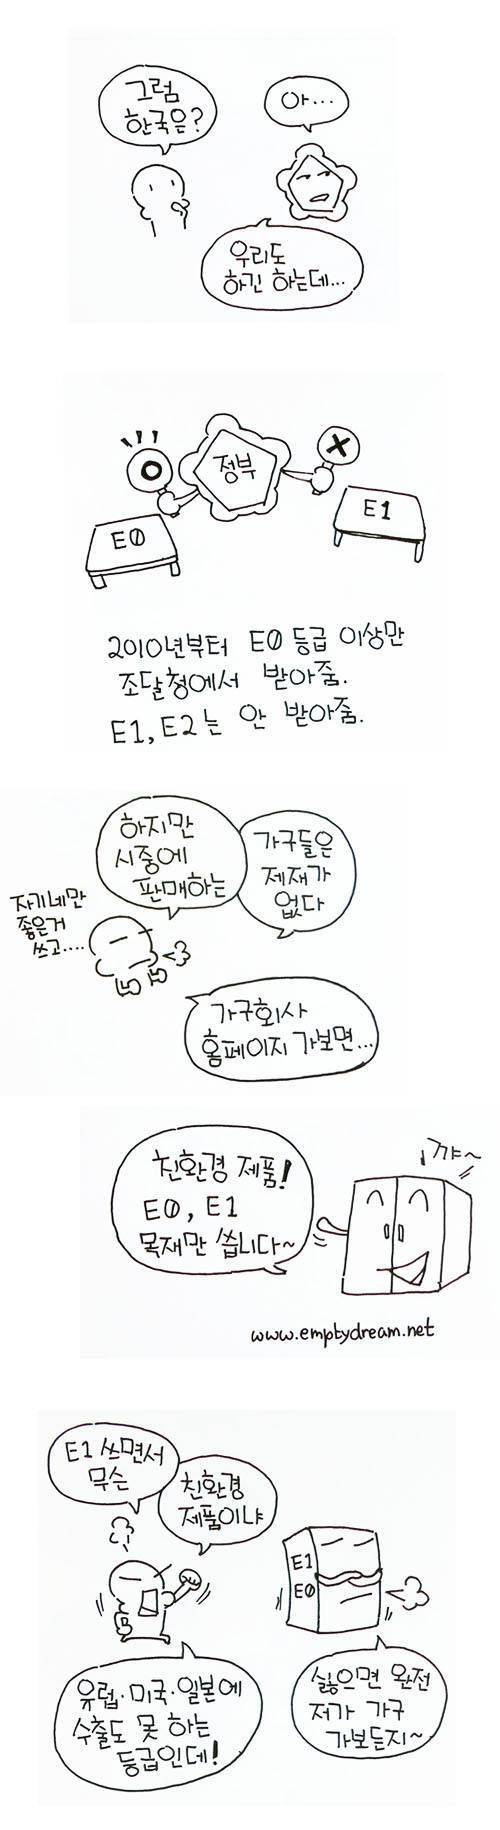 그럼
한국은?
아...
우리도
하긴 하는데...
정부
O
X
E0
E1
2010년부터 E0 등급 이상만
조달청에서 받아줌.
E1, E2는 안 받아줌.
하지만
시중에
판매하는
가구들은
제재가
없다
자기네만
좋은거
쓰고....
가구회사
홈페이지 가보면...
친환경 제품!
E0, E1
목재만 씁니다~
꺄~
www.emptydream.net
E1 쓰면서
무슨
친환경
제품이냐
E1
E0
유럽·미국·일본에
수출도 못 하는
등급인데!
싫으면 완전
저가 가구
가보든지~